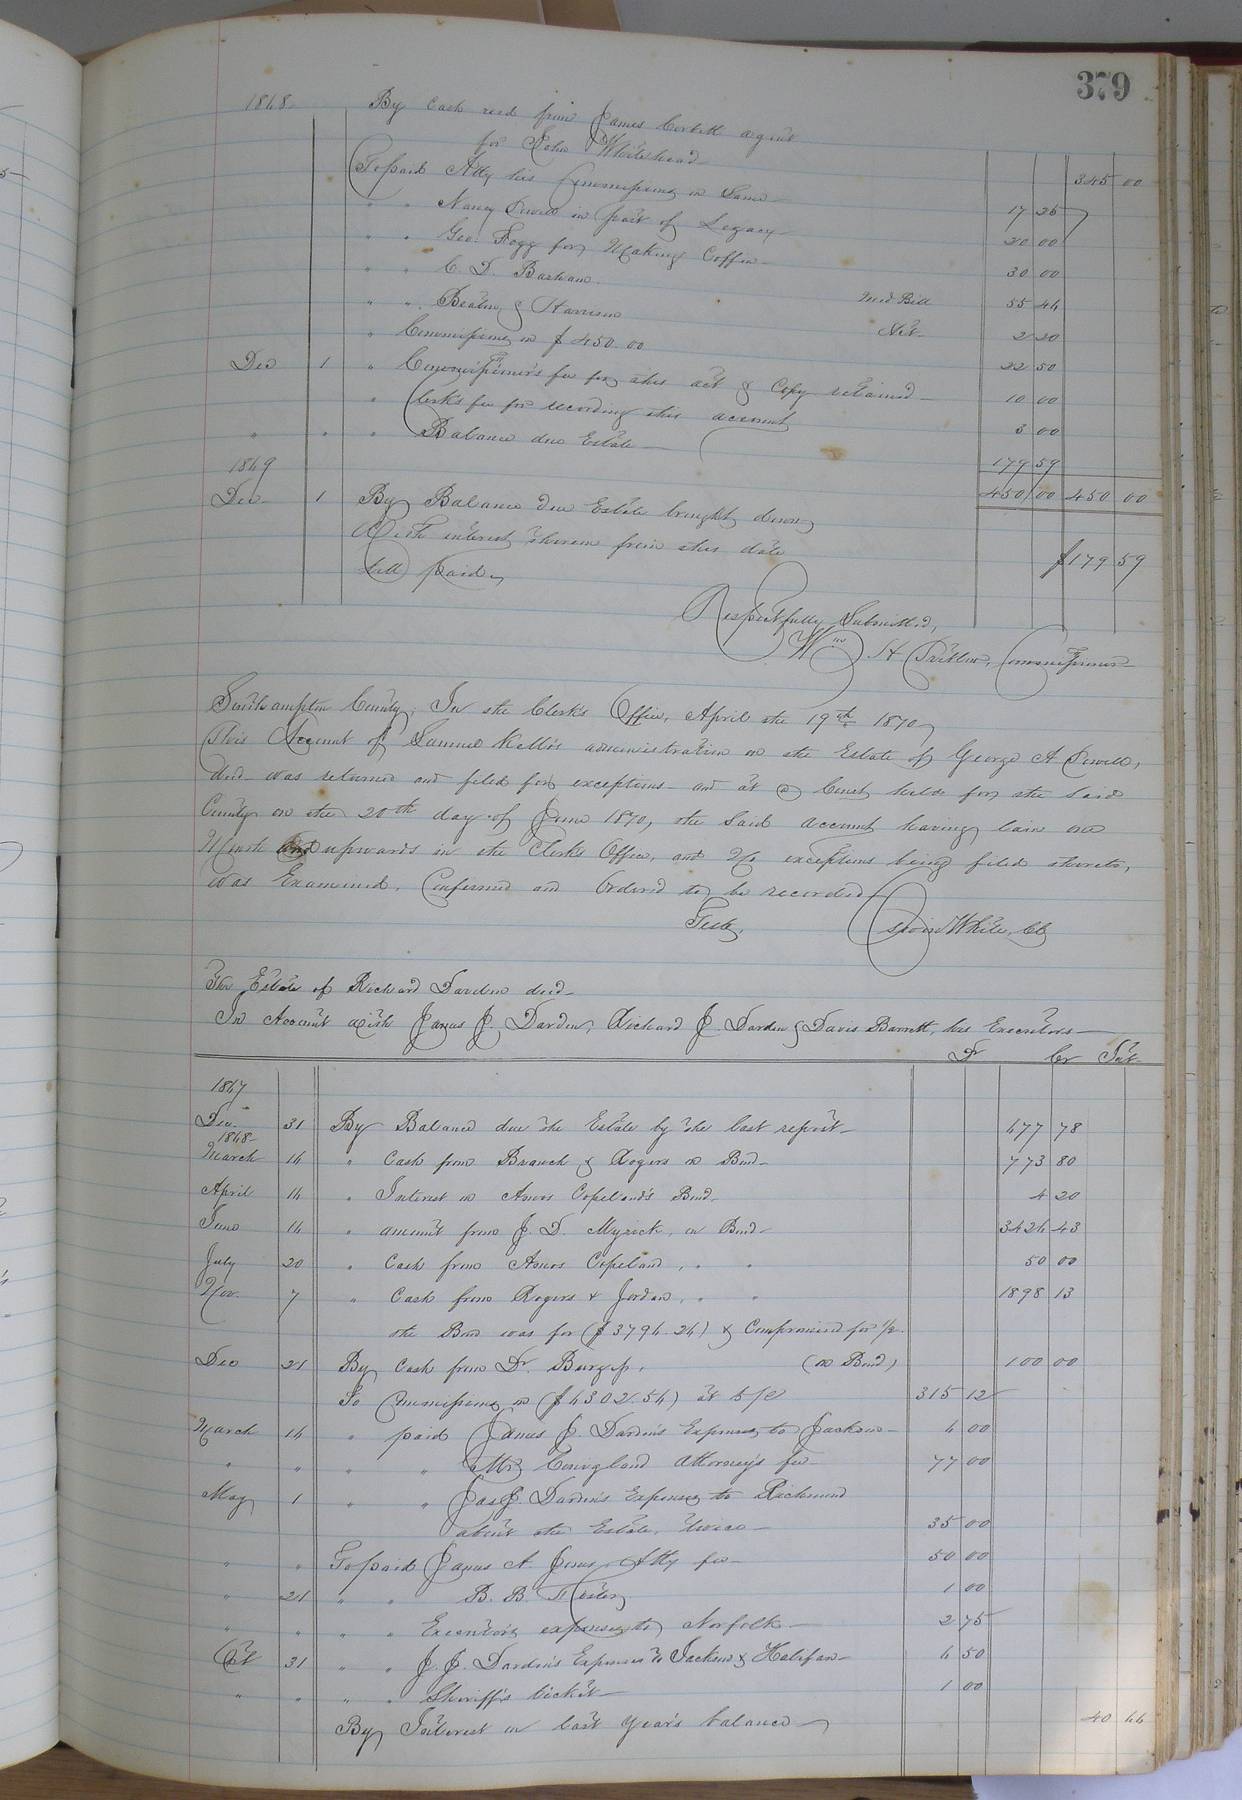 379
1868 By Cash recd from James Corbitt agent
for John Whitehead 345 00
To paid Atty his Commissions on Same 17 25
" " Nancy Sewell in part of Legacy 20 00
" " Geo. Fogg for Making Coffin 30 00
" " C. D. Barham Med Bill 55 44
" " Beaton & Harrison Net 2 20
" Commissions on $450.00 22 50
Dec 1 " Commissioner's fee for this act & Copy retained 10 00
" Clerks fee for recording this account 3 00
" " " Balance due Estate 179 59
1869 450 00 450 00
Dec 1 By Balance due Estate brought down
With interest thereon from this date
till paid $179 59
Respectfully Submitted,
Wm H Commissioner
Southampton County. In the Clerk's Office, April the 19th 1870
This Account of Samuel Kello's administration on the Estate of George A Sewell,
decd was returned and filed for exceptions and at a Court held for the Said
County on the 20th day of June 1870, the Said account having lain one
Month and upwards in the Clerks Office, and No exceptions being filed thereto,
was Examined, Confirmed and Ordered to be recorded
Teste, White, Clk
The Estate of Richard Darden decd
In Account with James J. Darden, Richard J. Darden & Davis Barrett, his Executors
Dr Cr Int
1867
Dec 31 By Balance due the Estate by the last report 677 78
1868
March 14 " Cash from Branch & Rogers on Bond 773 80
April 14 " Interest on Amos Copeland's Bond 4 20
June 14 " amount from J. D. Myrick, on Bond 3424 43
July 20 " Cash from Amos Copeland, " " 50 00
Nov. 7 " Cash from Rogers & Jordan, " " 1898 13
the Bond was for ($3796.26) & Compromised for 1/2
Dec 21 By Cash from Dr Burgess, (on Bond) 100 00
To Commissions on ($6302.54) at 5/c 315 12
March 14 " paid James J. Darden's Expenses to Jackson 4 00
" " " " Mr Conigland Attorney's fee 77 00
May 1 " " Jas J. Darden's Expenses to Richmond
about the Estate, twice 35 00
" " To paid James A. Jones, Atty fee 50 00
" 21 " " B. B. 1 00
" " " " Executors expenses to Norfolk 2 75
Oct 31 " " J. J. Darden's Expenses to Jackson & Halifax 4 50
" " " " Sheriff's ticket 1 00
By Interest on last year's balance 40 66